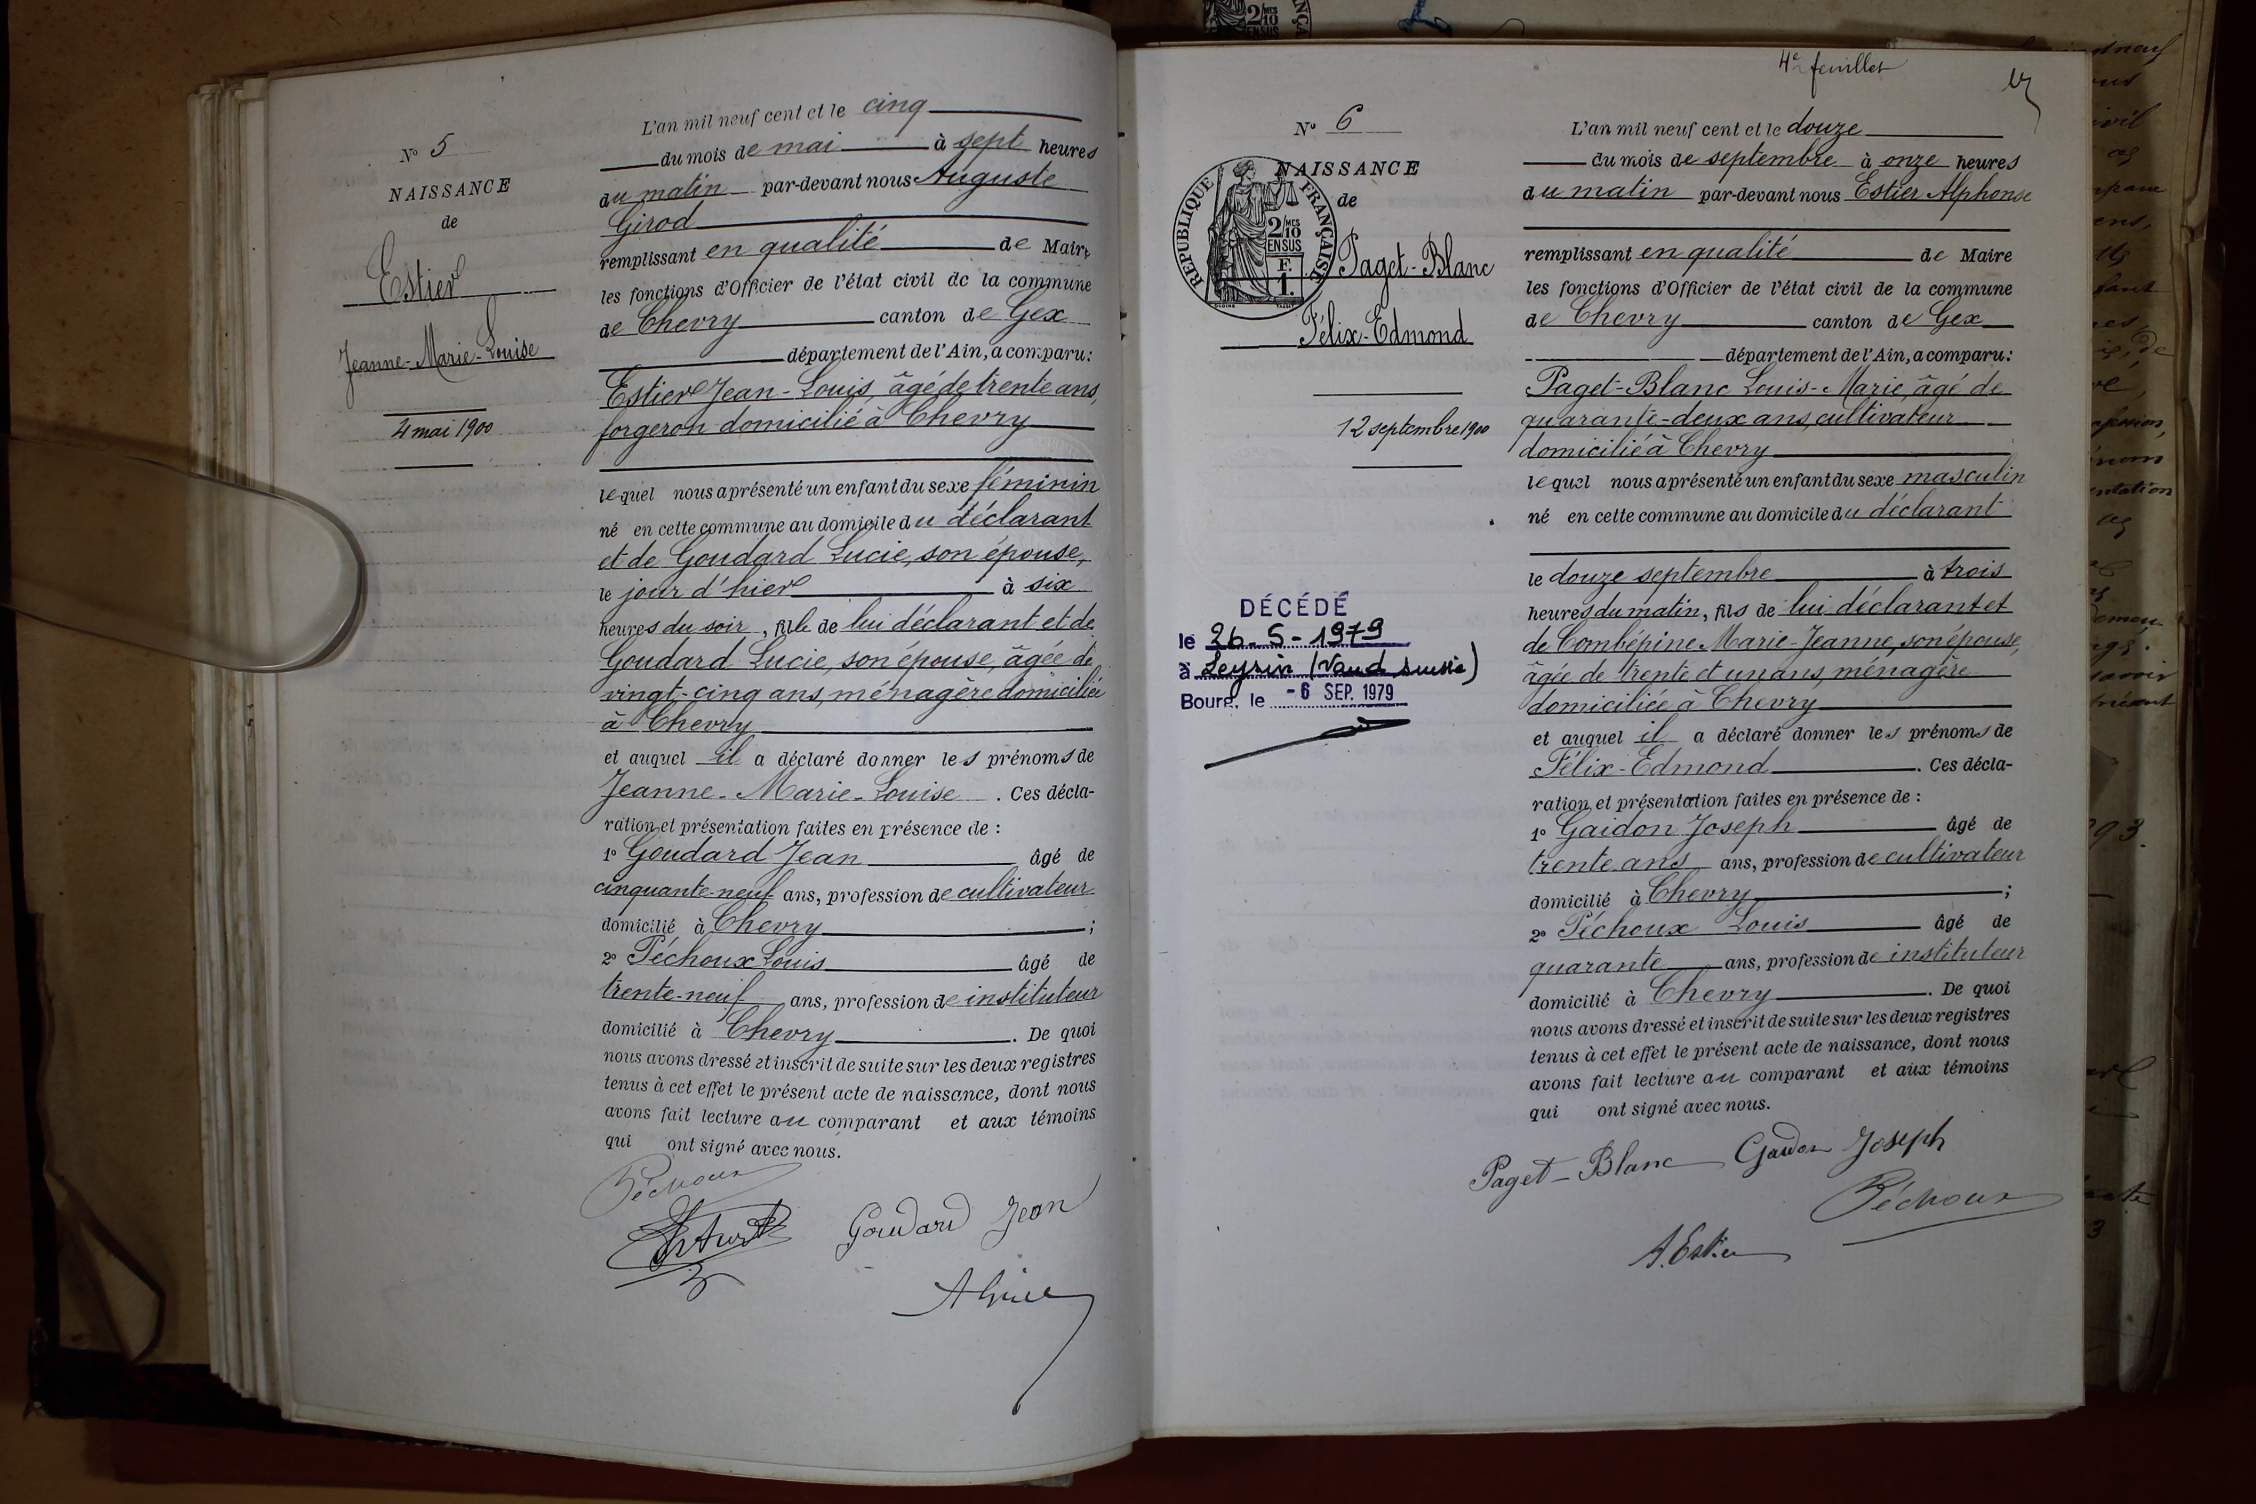 N° 5
NAISSANCE
de
Estier
Jeanne-Marie-Louise
4 mai 1900
L'an mil neuf cent et le cinq
du mois de mai à sept heures
du matin par-devant nous Auguste
Girod
remplissant en qualité de Maire
les fonctions d'Officier de l'état civil de la commune
de Chevry canton de Gex
département de l'Ain, a comparu:
Estier Jean-Louis, âgé de trente ans,
forgeron domicilié à Chevry
lequel nous a présenté un enfant du sexe féminin
né en cette commune au domicile du déclarant
et de Goudard Lucie, son épouse,
le jour d'hier à six
heures du soir, fille de lui déclarant et de
Goudard Lucie, son épouse, âgée de
vingt-cinq ans, ménagère domiciliée
à Chevry
et auquel il a déclaré donner les prénoms de
Jeanne-Marie-Louise. Ces décla-
ration et présentation faites en présence de :
1° Goudard Jean âgé de
cinquante-neuf ans, profession de cultivateur
domicilié à Chevry ;
2° Péchoux Louis âgé de
trente-neuf ans, profession de instituteur
domicilié à Chevry. De quoi
nous avons dressé et inscrit de suite sur les deux registres
tenus à cet effet le présent acte de naissance, dont nous
avons fait lecture au comparant et aux témoins
qui ont signé avec nous.
Péchoux
Goudard Jean
4e feuillet
N° 6
NAISSANCE
de
REPUBLIQUE FRANÇAISE
2/10 MES
EN SUS
F.
1.
Paget-Blanc
Félix-Edmond
12 septembre 1900
DÉCÉDÉ
le 26-5-1979
à Leysin (Vaud suisse)
Bourg, le -6 SEP. 1979
L'an mil neuf cent et le douze
du mois de septembre à onze heures
du matin par-devant nous Estier Alphonse
remplissant en qualité de Maire
les fonctions d'Officier de l'état civil de la commune
de Chevry canton de Gex
département de l'Ain, a comparu:
Paget-Blanc Louis-Marie, âgé de
quarante-deux ans, cultivateur
domicilié à Chevry
lequel nous a présenté un enfant du sexe masculin
né en cette commune au domicile du déclarant
le douze septembre à trois
heures du matin, fils de lui déclarant et
de Combépine Marie-Jeanne, son épouse,
âgée de trente et un ans, ménagère
domiciliée à Chevry
et auquel il a déclaré donner les prénoms de
Félix-Edmond. Ces décla-
ration et présentation faites en présence de :
1° Gaidon Joseph âgé de
trente ans ans, profession de cultivateur
domicilié à Chevry ;
2° Péchoux Louis âgé de
quarante ans, profession de instituteur
domicilié à Chevry. De quoi
nous avons dressé et inscrit de suite sur les deux registres
tenus à cet effet le présent acte de naissance, dont nous
avons fait lecture au comparant et aux témoins
qui ont signé avec nous.
Paget-Blanc Gaidon Joseph
Péchoux
A. Estier